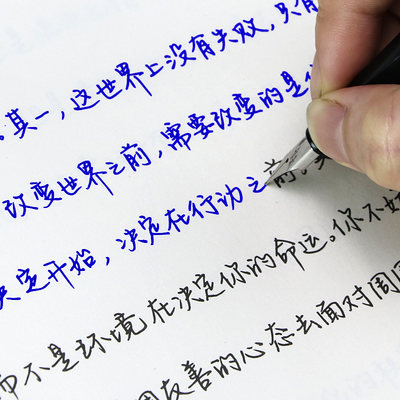 。其一，这世界上没有失败，只有
改变世界之前，需要改变的是你
决定开始，决定在行动之前。
而不是环境在决定你的命运。你不好
友善的心态去面对周围